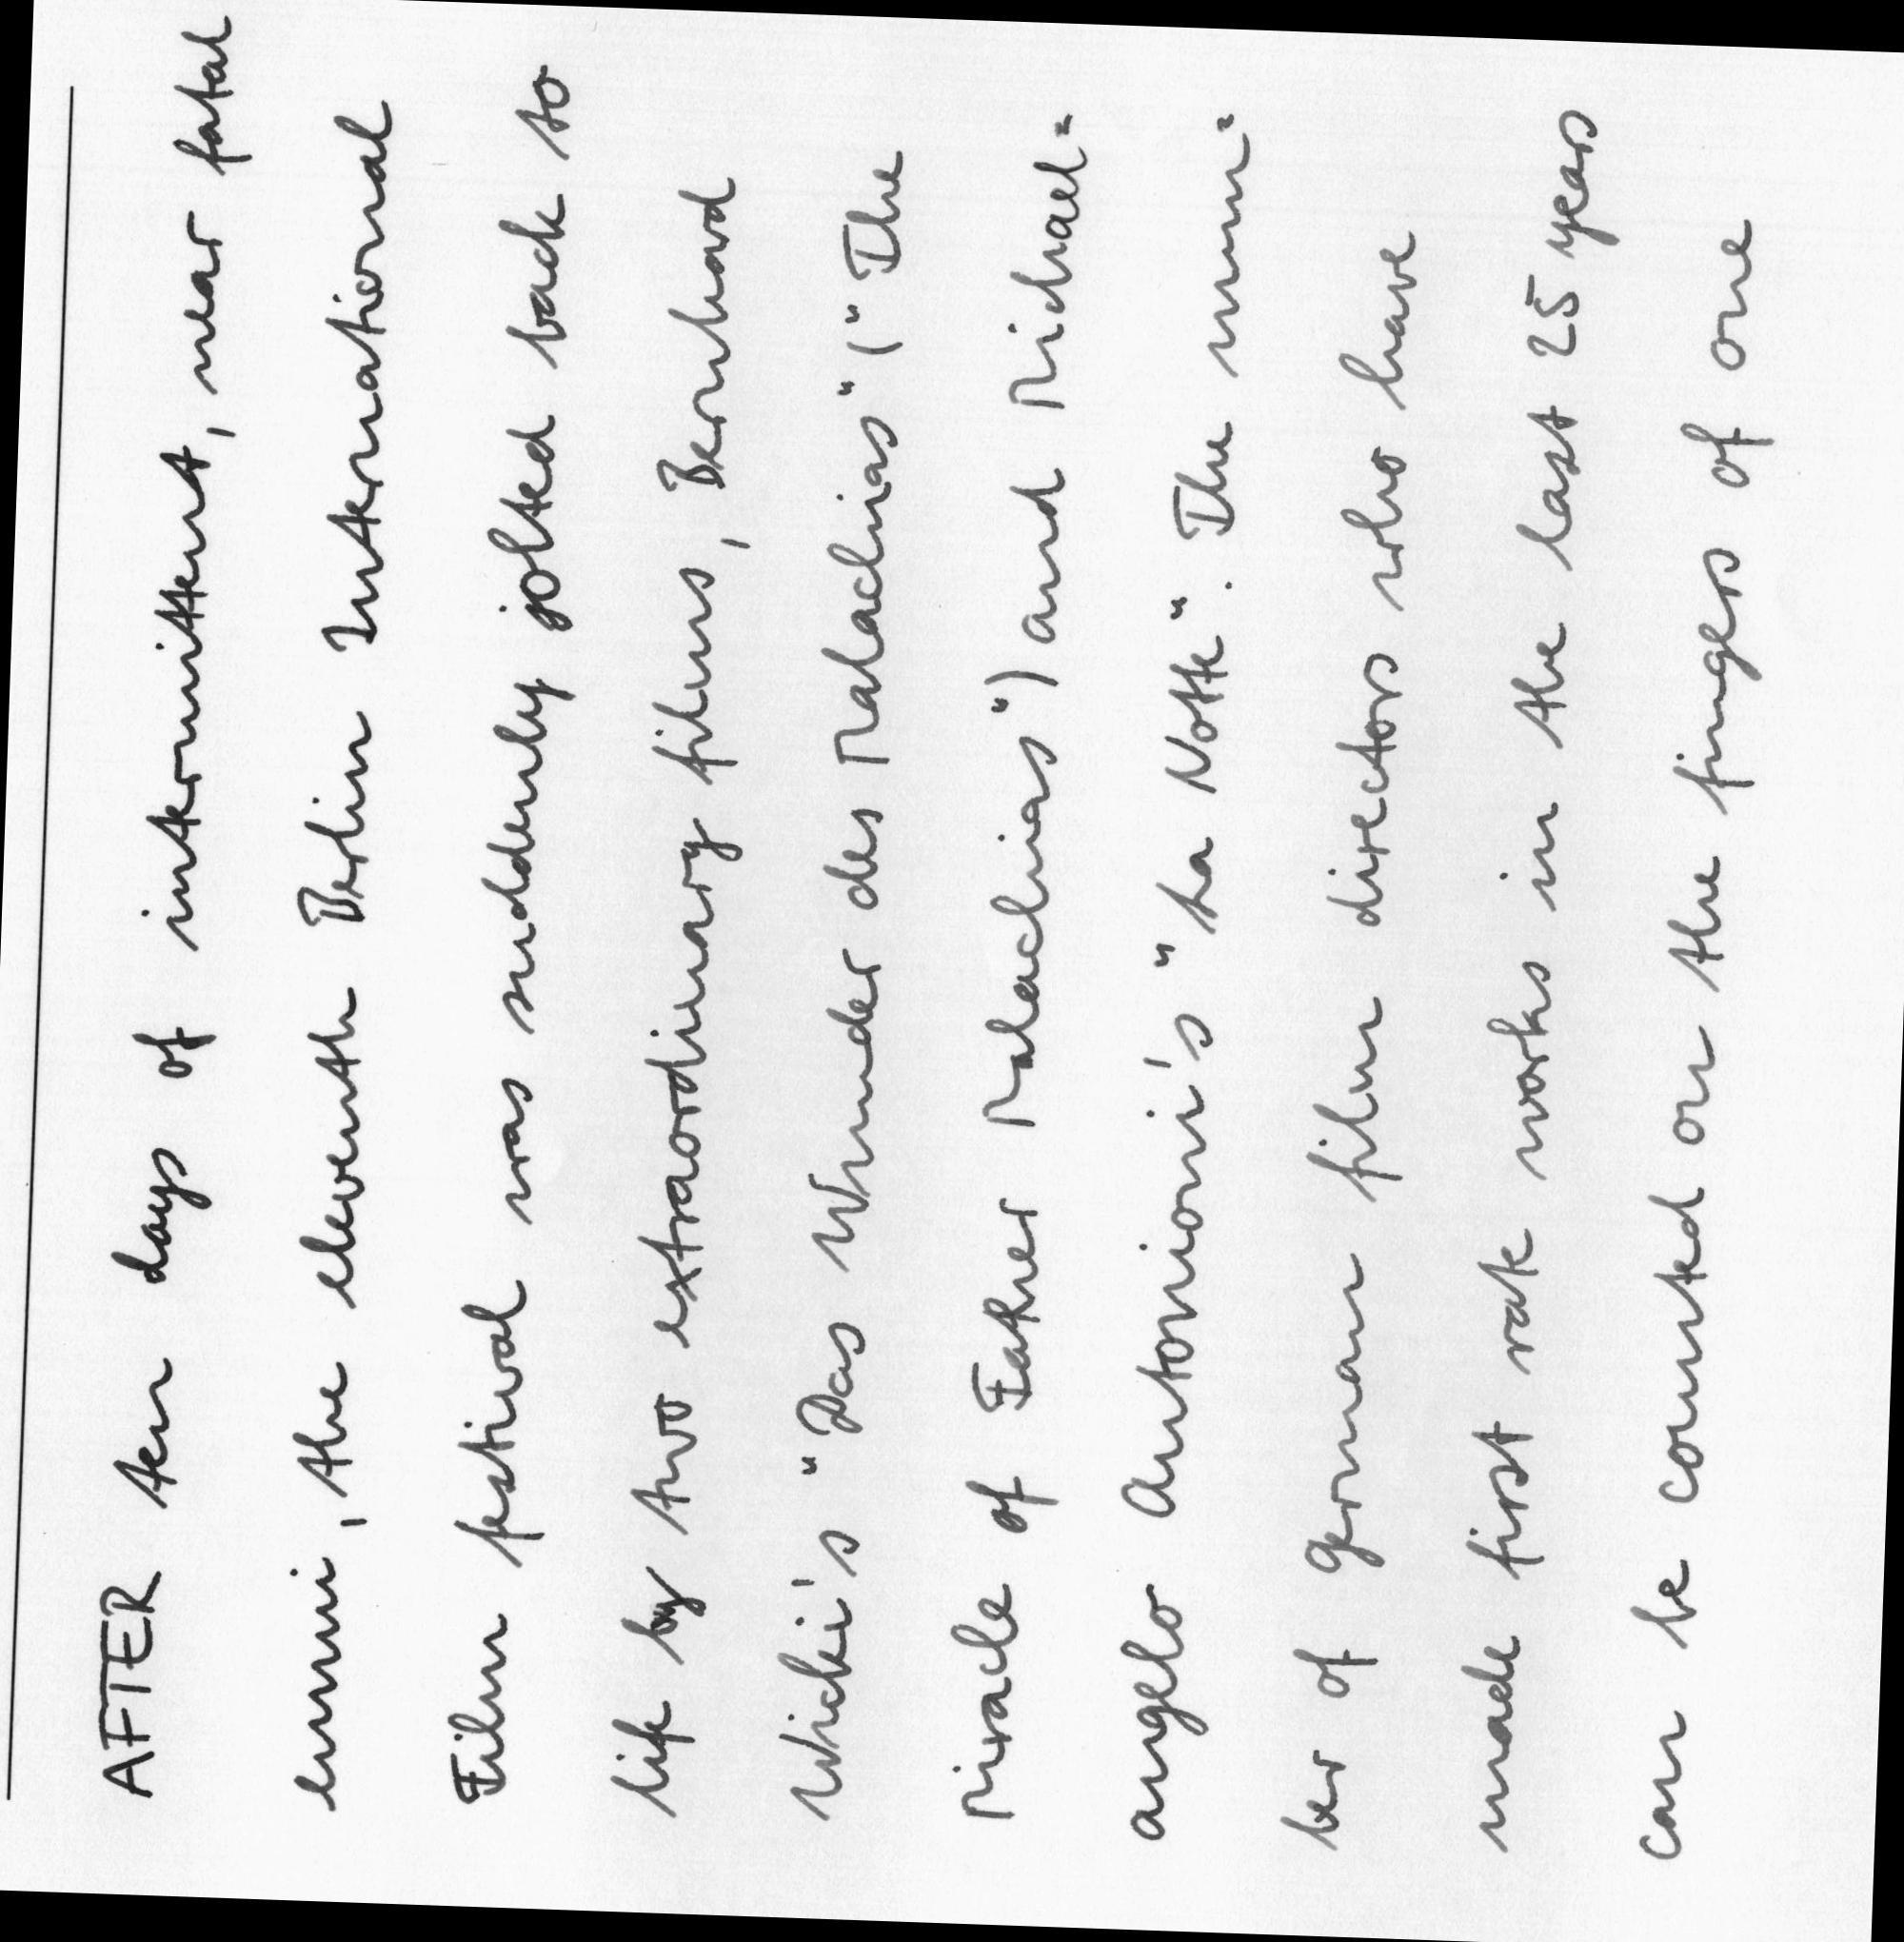 AFTER ten days of intermittent, near fatal
ennui, the eleventh Berlin International
Film festival was suddenly jolted back to
life by two extraordinary films, Bernhard
Wicki's "Das Wunder des Malachias" ("The
Miracle of Father Malachias") and Michael-
angelo Antonioni's "La Notte". The num-
ber of german film directors who have
made first rate works in the last 25 years
can be counted on the fingers of one